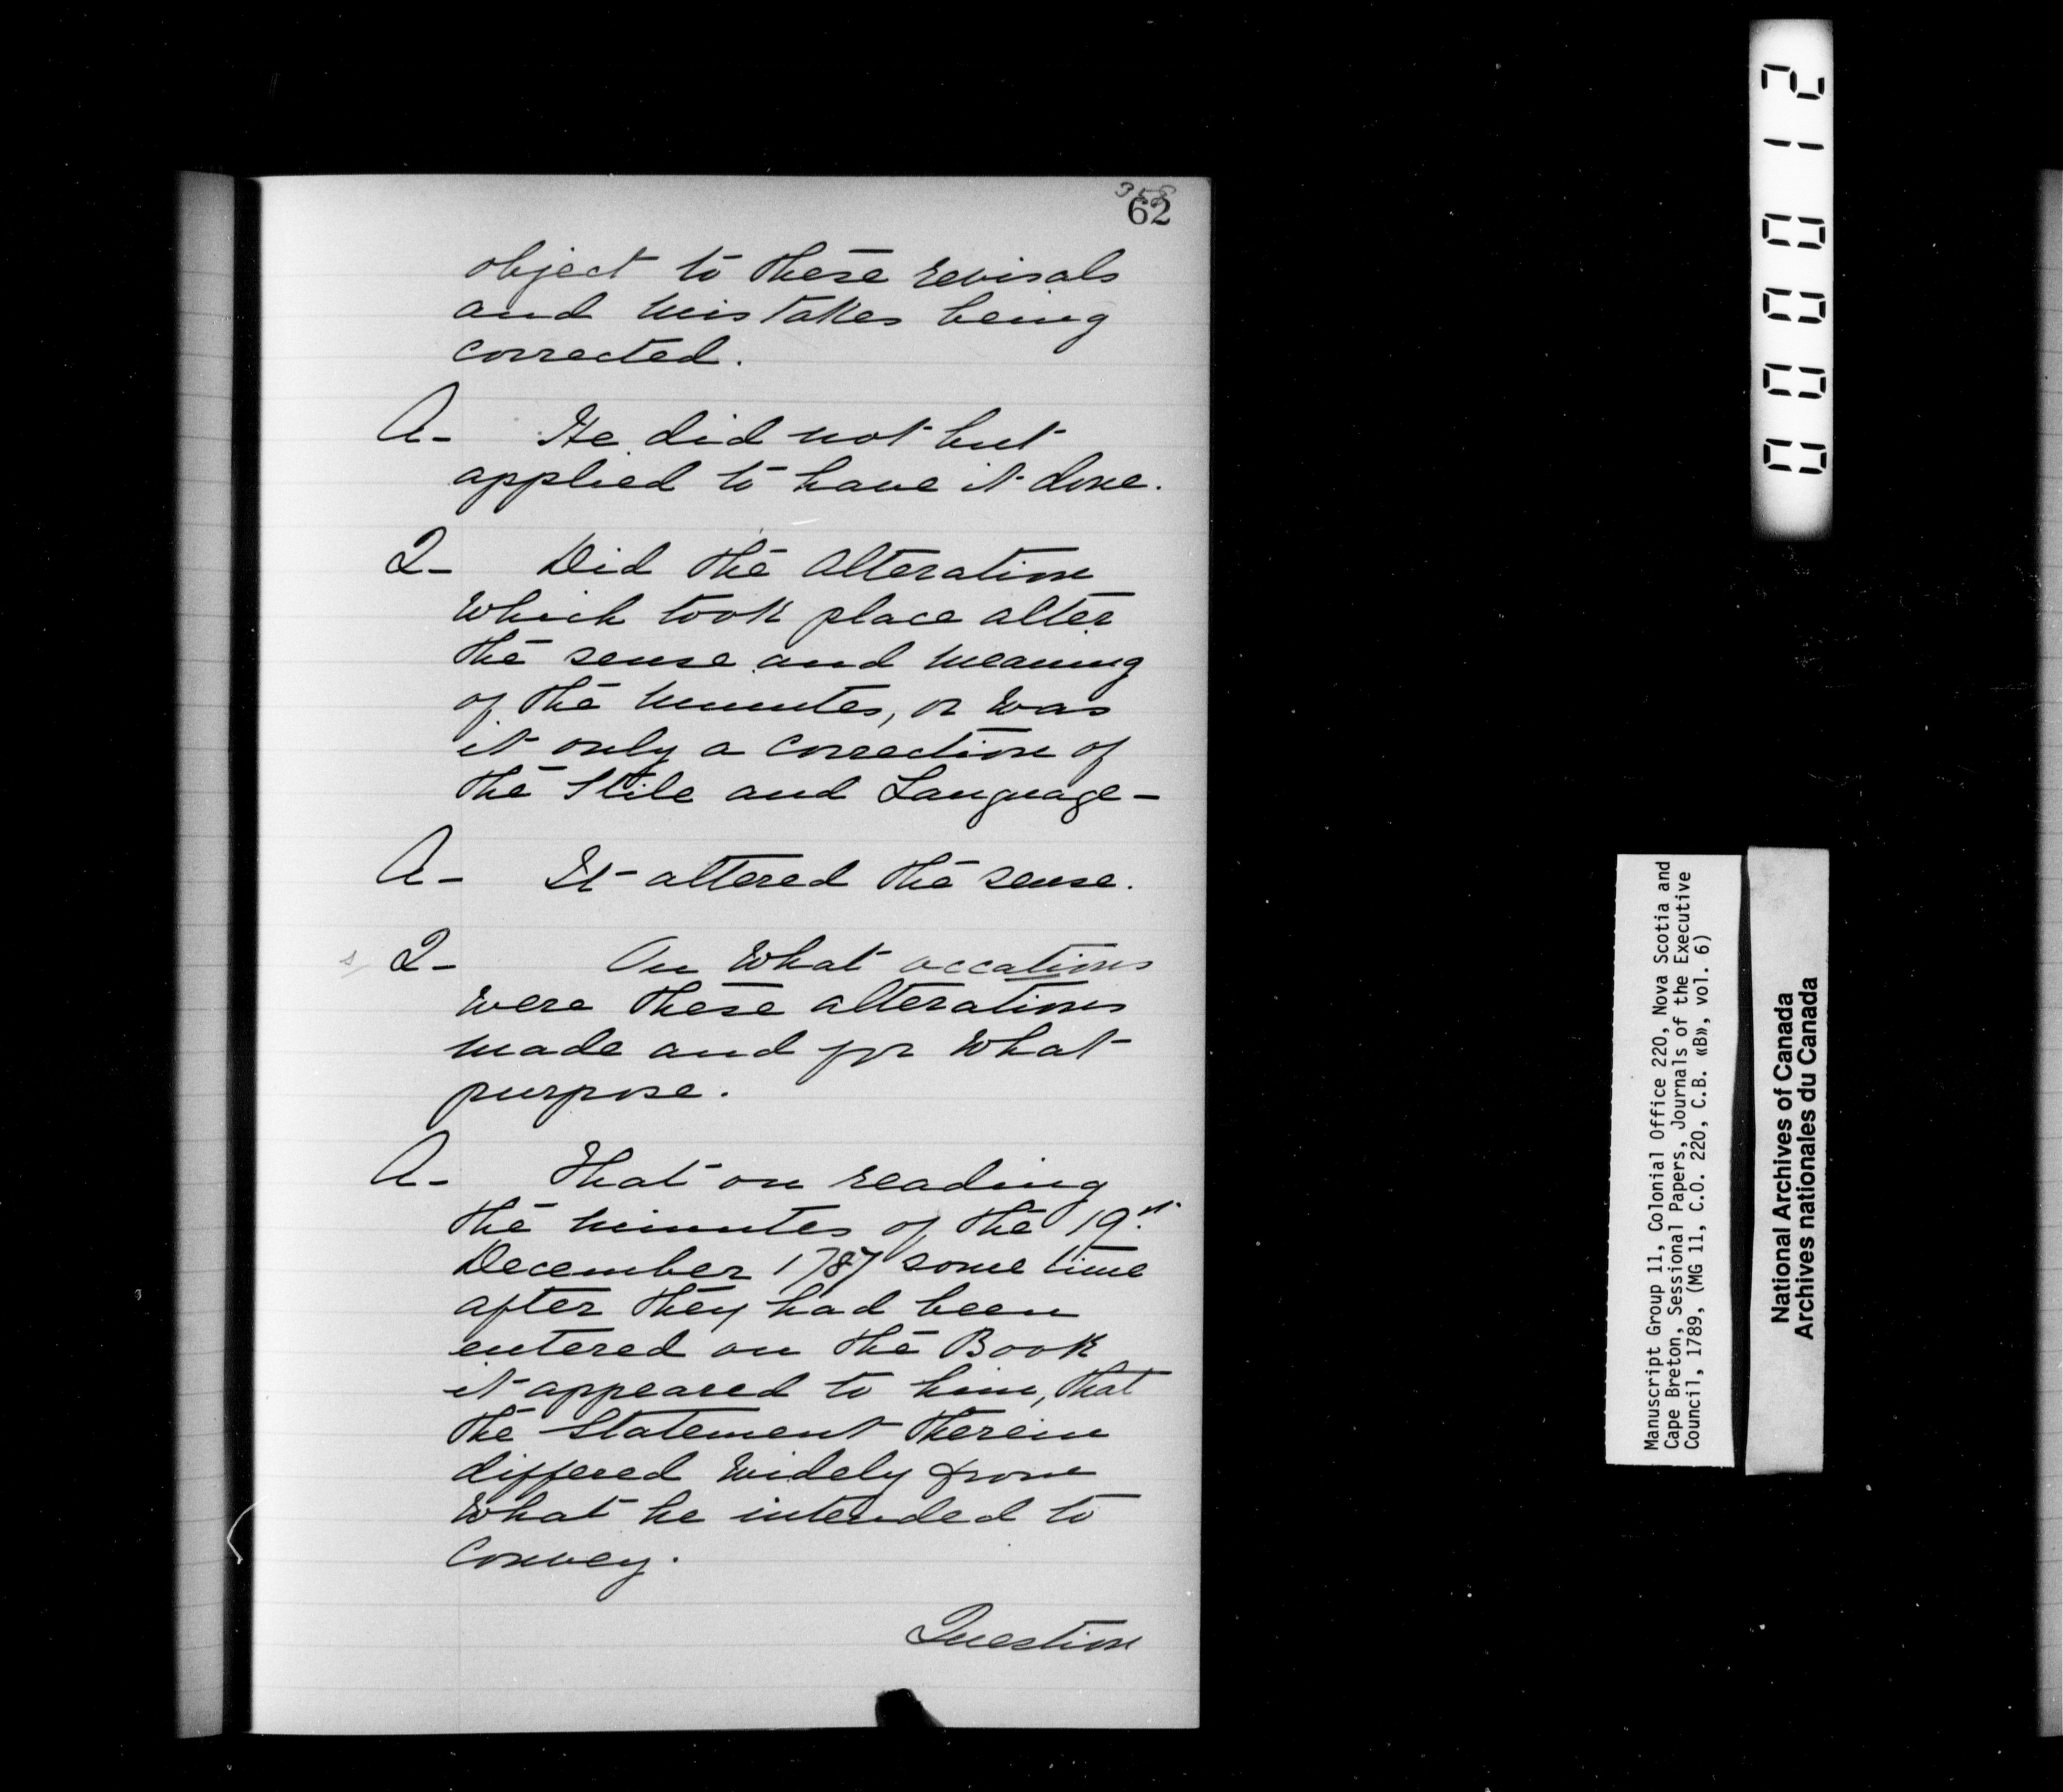 358
62
object to these revisals
and mistakes being
corrected.
A- He did not but
applied to have it done.
Q- Did the Alteration
which took place alter
the sense and meaning
of the minutes, or was
it only a correction of
the Stile and Language-
A- It altered the sense.
s/ Q- On what occations
were these alterations
made and for what
purpose.
A- That on reading
the minutes of the 19th
December 1787 some time
after they had been
entered on the Book
it appeared to him, that
the Statement therein
differed widely from
what he intended to
convey.
Question
000012
Manuscript Group 11, Colonial Office 220, Nova Scotia and
Cape Breton, Sessional Papers, Journals of the Executive
Council, 1789, (MG 11, C.O. 220, C.B. «B», vol. 6)
National Archives of Canada
Archives nationales du Canada